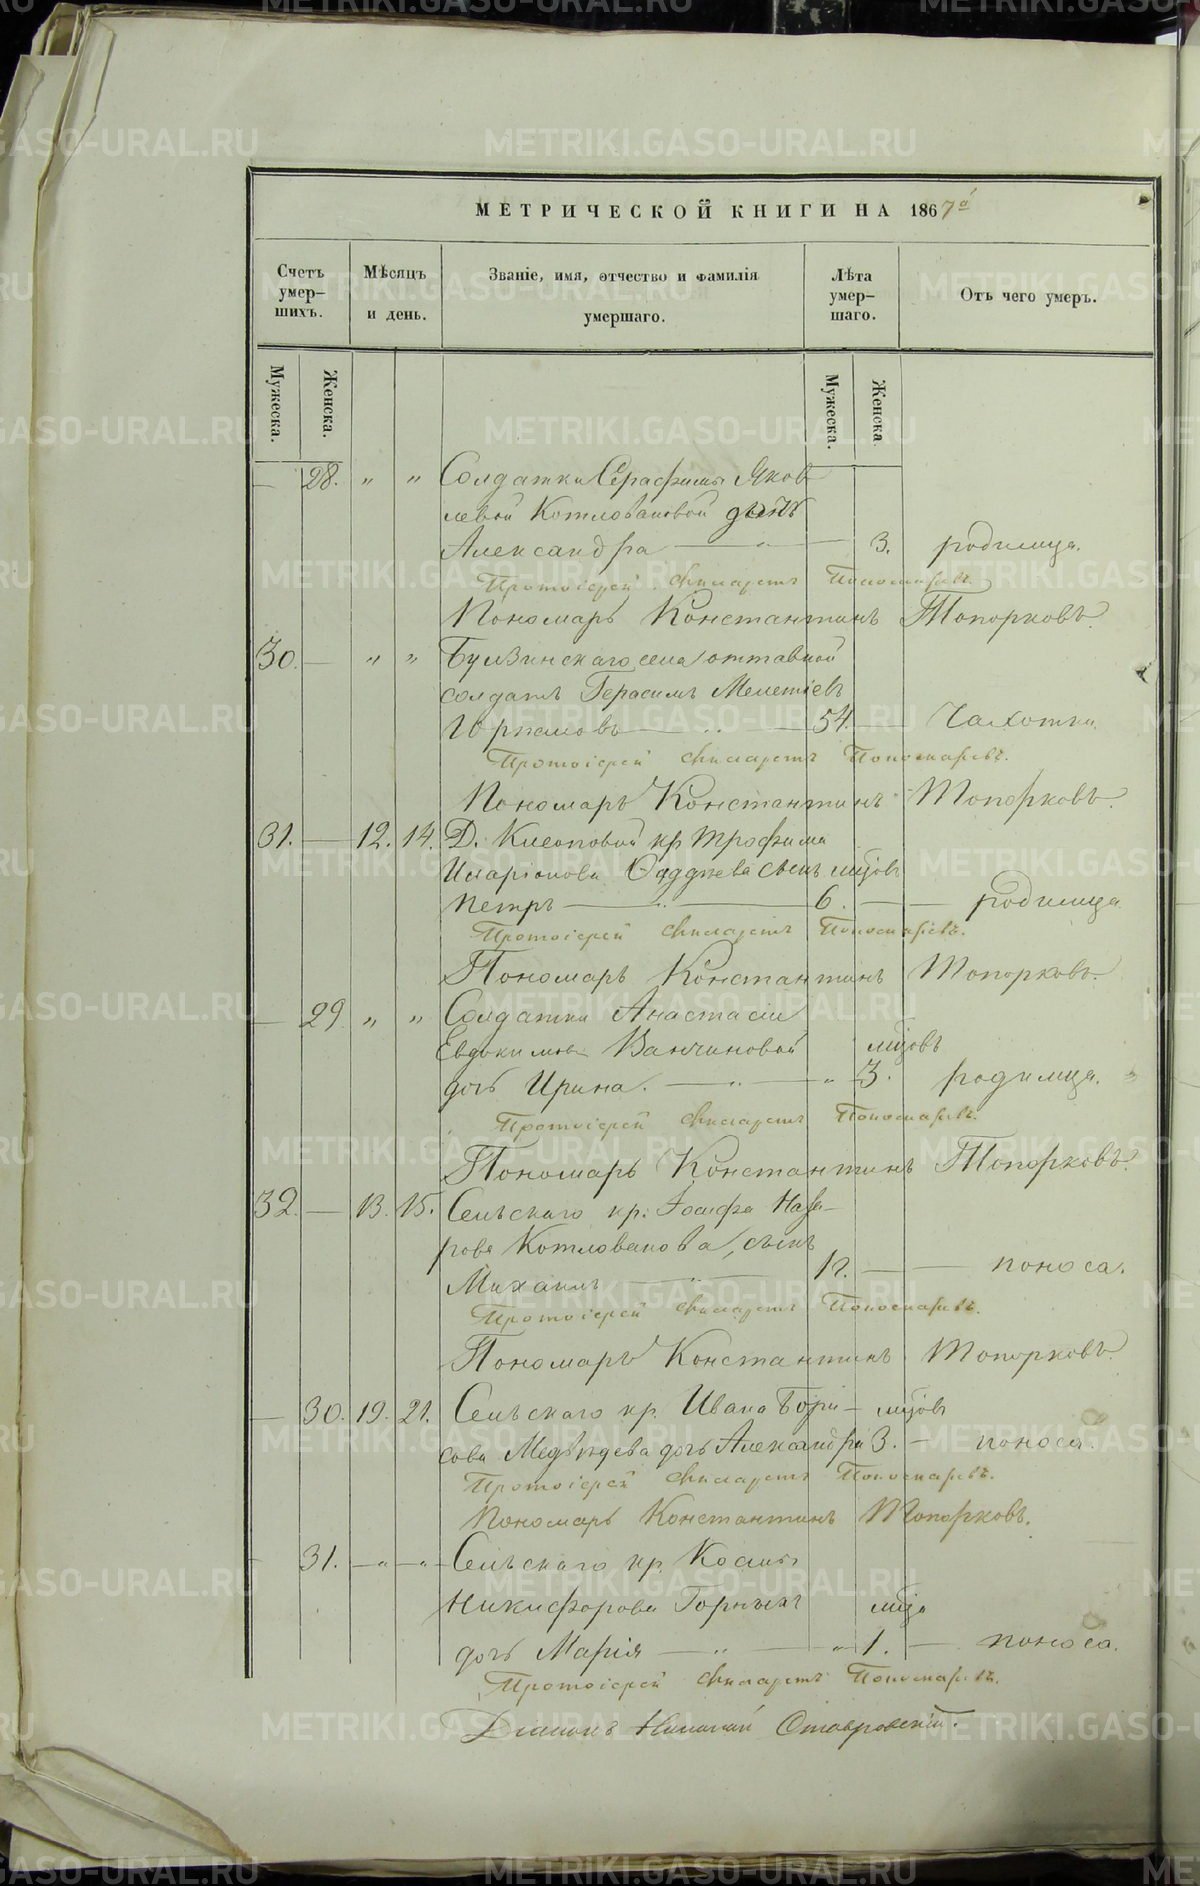 МЕТРИЧЕСКОЙ КНИГИ НА 1867й
Счетъ умер-шихъ.
Мѣсяцъ и день.
Званіе, имя, отчество и фамилія умершаго.
Лѣта умер-шаго.
Отъ чего умеръ.
Мужеска.
Женска.
Мужеска.
Женска.
28. " " Солдатки Серафимы Яков
левой Котловановой дочь
Александра — " — 3. родимца.
Протоіерей Филаретъ Пономаревъ.
Пономарь Константинъ Топорковъ.
30. — " " Булзинскаго села отставной
солдатъ Герасимъ Мелетіевъ
54. — Чахотки
Протоіерей Филаретъ Пономаревъ.
Пономарь Константинъ Топорковъ.
31. — 12. 14. Д. кр Трофима
Иларіонова сынъ мѣсяцовъ
Петръ — " — 6. — — родимца
Протоіерей Филаретъ Пономаревъ.
Пономарь Константинъ Топорковъ.
— 29 " " Солдатки Анастасіи
Евдокимов Ванчиновой мѣсяцовъ
дочь Ирина. — " — " 3. родимца.
Протоіерей Филаретъ Пономаревъ.
Пономарь Константинъ Топорковъ.
32. — 13. 15. Сельскаго кр. Іосифа Наза-
рова Котлованова, сынъ
Михаилъ — " — 1 г. — — поноса.
Протоіерей Филаретъ Пономаревъ.
Пономарь Константинъ Топорковъ.
— 30. 19. 21. Сельскаго кр. Ивана Бори- мѣсяцовъ
сова Медвѣдева дочь Александра 3. — поноса.
Протоіерей Филаретъ Пономаревъ.
Пономарь Константинъ Топорковъ.
31. — " — " — Сельскаго кр. Космы
Никифорова Горныхъ мѣсяца
дочь Марія — " — " 1. — поноса.
Протоіерей Филаретъ Пономаревъ.
Діаконъ Николай Ставровскій.
METRIKI.GASO-URAL.RU